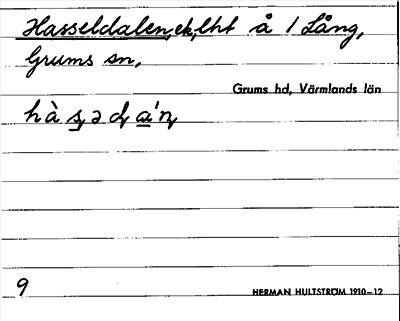 Hasseldalen, ek, lht å 1 Lång,
Grums sn,
Grums hd, Värmlands län
9
HERMAN HULTSTRÖM 1910–12